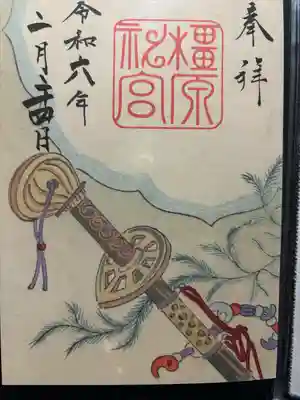 奉拝
橿原
神宮
令和六年
二月二十四日